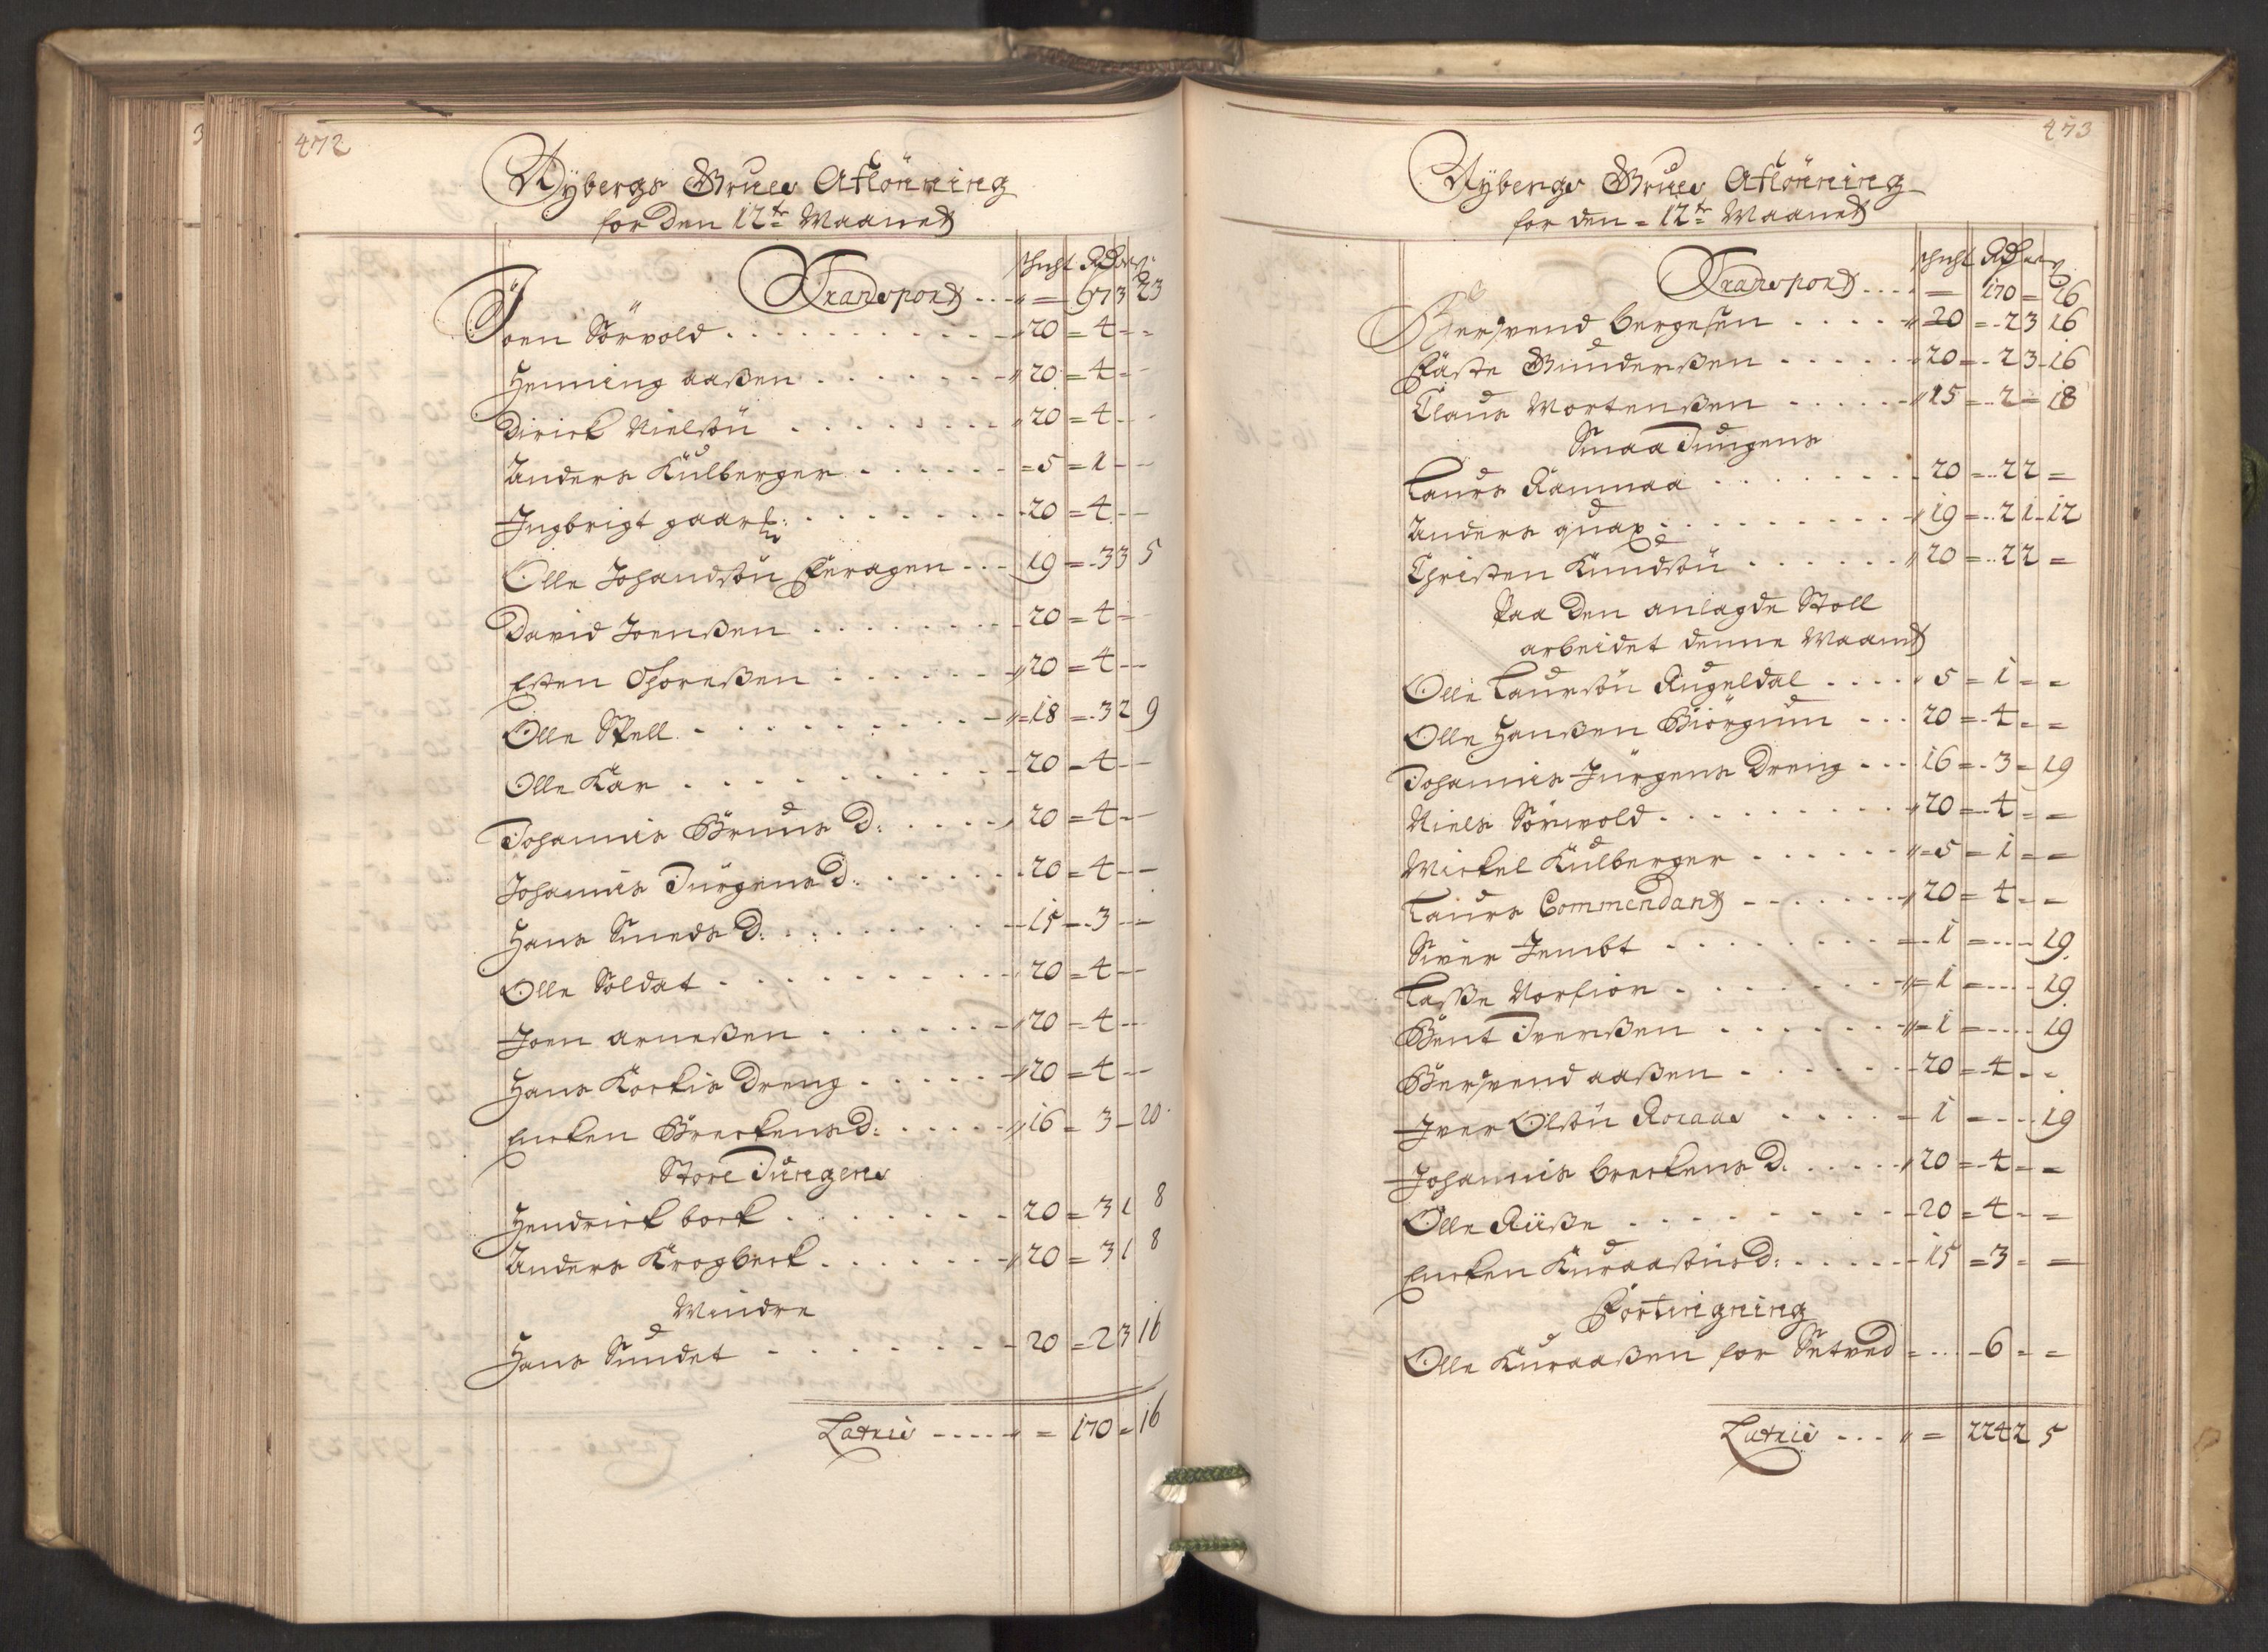 472
Nÿbergs Grues Aflönning
for den 12te Maanet
schicht Rdr ort s
Transport . . . " = 97 3 23
Joen Sörvold . . . " 20 = 4 - -
Henning Aaßen . . . " 20 = 4 - -
Dirich Nielsön . . . " 20 = 4 - -
Anders Külberger . . . = 5 = 1 - -
Ingbrigt gaarb: . . . 20 = 4 - -
Olle Johandsön Feragen . . . 19 = 3 3 5
David Joenßen . . . 20 = 4 - -
Esten Thoreßen . . . " 20 = 4 - -
Olle Skell . . . " 18 = 3 2 9
Olle Kar . . . 20 = 4 - -
Johannis Bruns D: . . . 20 = 4 - -
Johannis Jürgens D: . . . 20 = 4 - -
Hans Smeds D: . . . 15 = 3 - -
Olle Soldat . . . 20 = 4 - -
Joen Arneßen . . . " 20 = 4 - -
Hans Kockis Dreng . . . " 20 = 4 - -
Encken Breckens D: . . . " 16 = 3 - 20
Store Jungens
Hendrick bock . . . 20 = 3 1 8
Anders Krogbeck . . . " 20 = 3 1 8
Mindre
Hans Sundet . . . 20 = 2 3 16
Latrie . . . " = 170 = 16
473
Nÿbergs Grues Aflönning
for den = 12te Maanet
schicht Rdr ort s
Transport . . . = 170 = 16
Bersvend bergesen . . . " 20 = 2 3 16
Fäste Gunderßen . . . 20 = 2 3 16
Claus Mortenßen . . . " 15 = 2 = 18
Smaa Jungens
Laurs Rämmaa . . . 20 = 2 2 =
Anders quax . . . " 19 = 2 1 12
Christen Knudsön . . . " 20 = 2 2 =
Paa den anlagde Stoll
arbeidet denne Maanet
Olle Laursön Rugeldal . . . " 5 = 1 = =
Olle Hanßen Biörgum . . . 20 = 4 = =
Johannis Jürgens Dreng . . . 16 = 3 = 19
Niels Sörwold . . . " 20 = 4 = =
Mickel Külberger . . . " 5 = 1 = =
Laurs Commendant . . . " 20 = 4 = =
Siver Jembt . . . 1 = - - 19
Laße Morfior . . . " 1 = - - 19
Bent Iverßen . . . " 1 = - - 19
Bersvend Aaßen . . . 20 = 4 = =
Iver Olsön Roeaas . . . 1 = - - 19
Johannis breckens D: . . . " 20 = 4 = =
Olle Rüße . . . 20 = 4 = =
Encken Kuraasens D: . . . 15 = 3 = =
Fortingning
Olle Kuraaßen for Setved . . . 6 = =
Latrie . . . " = 224 2 5